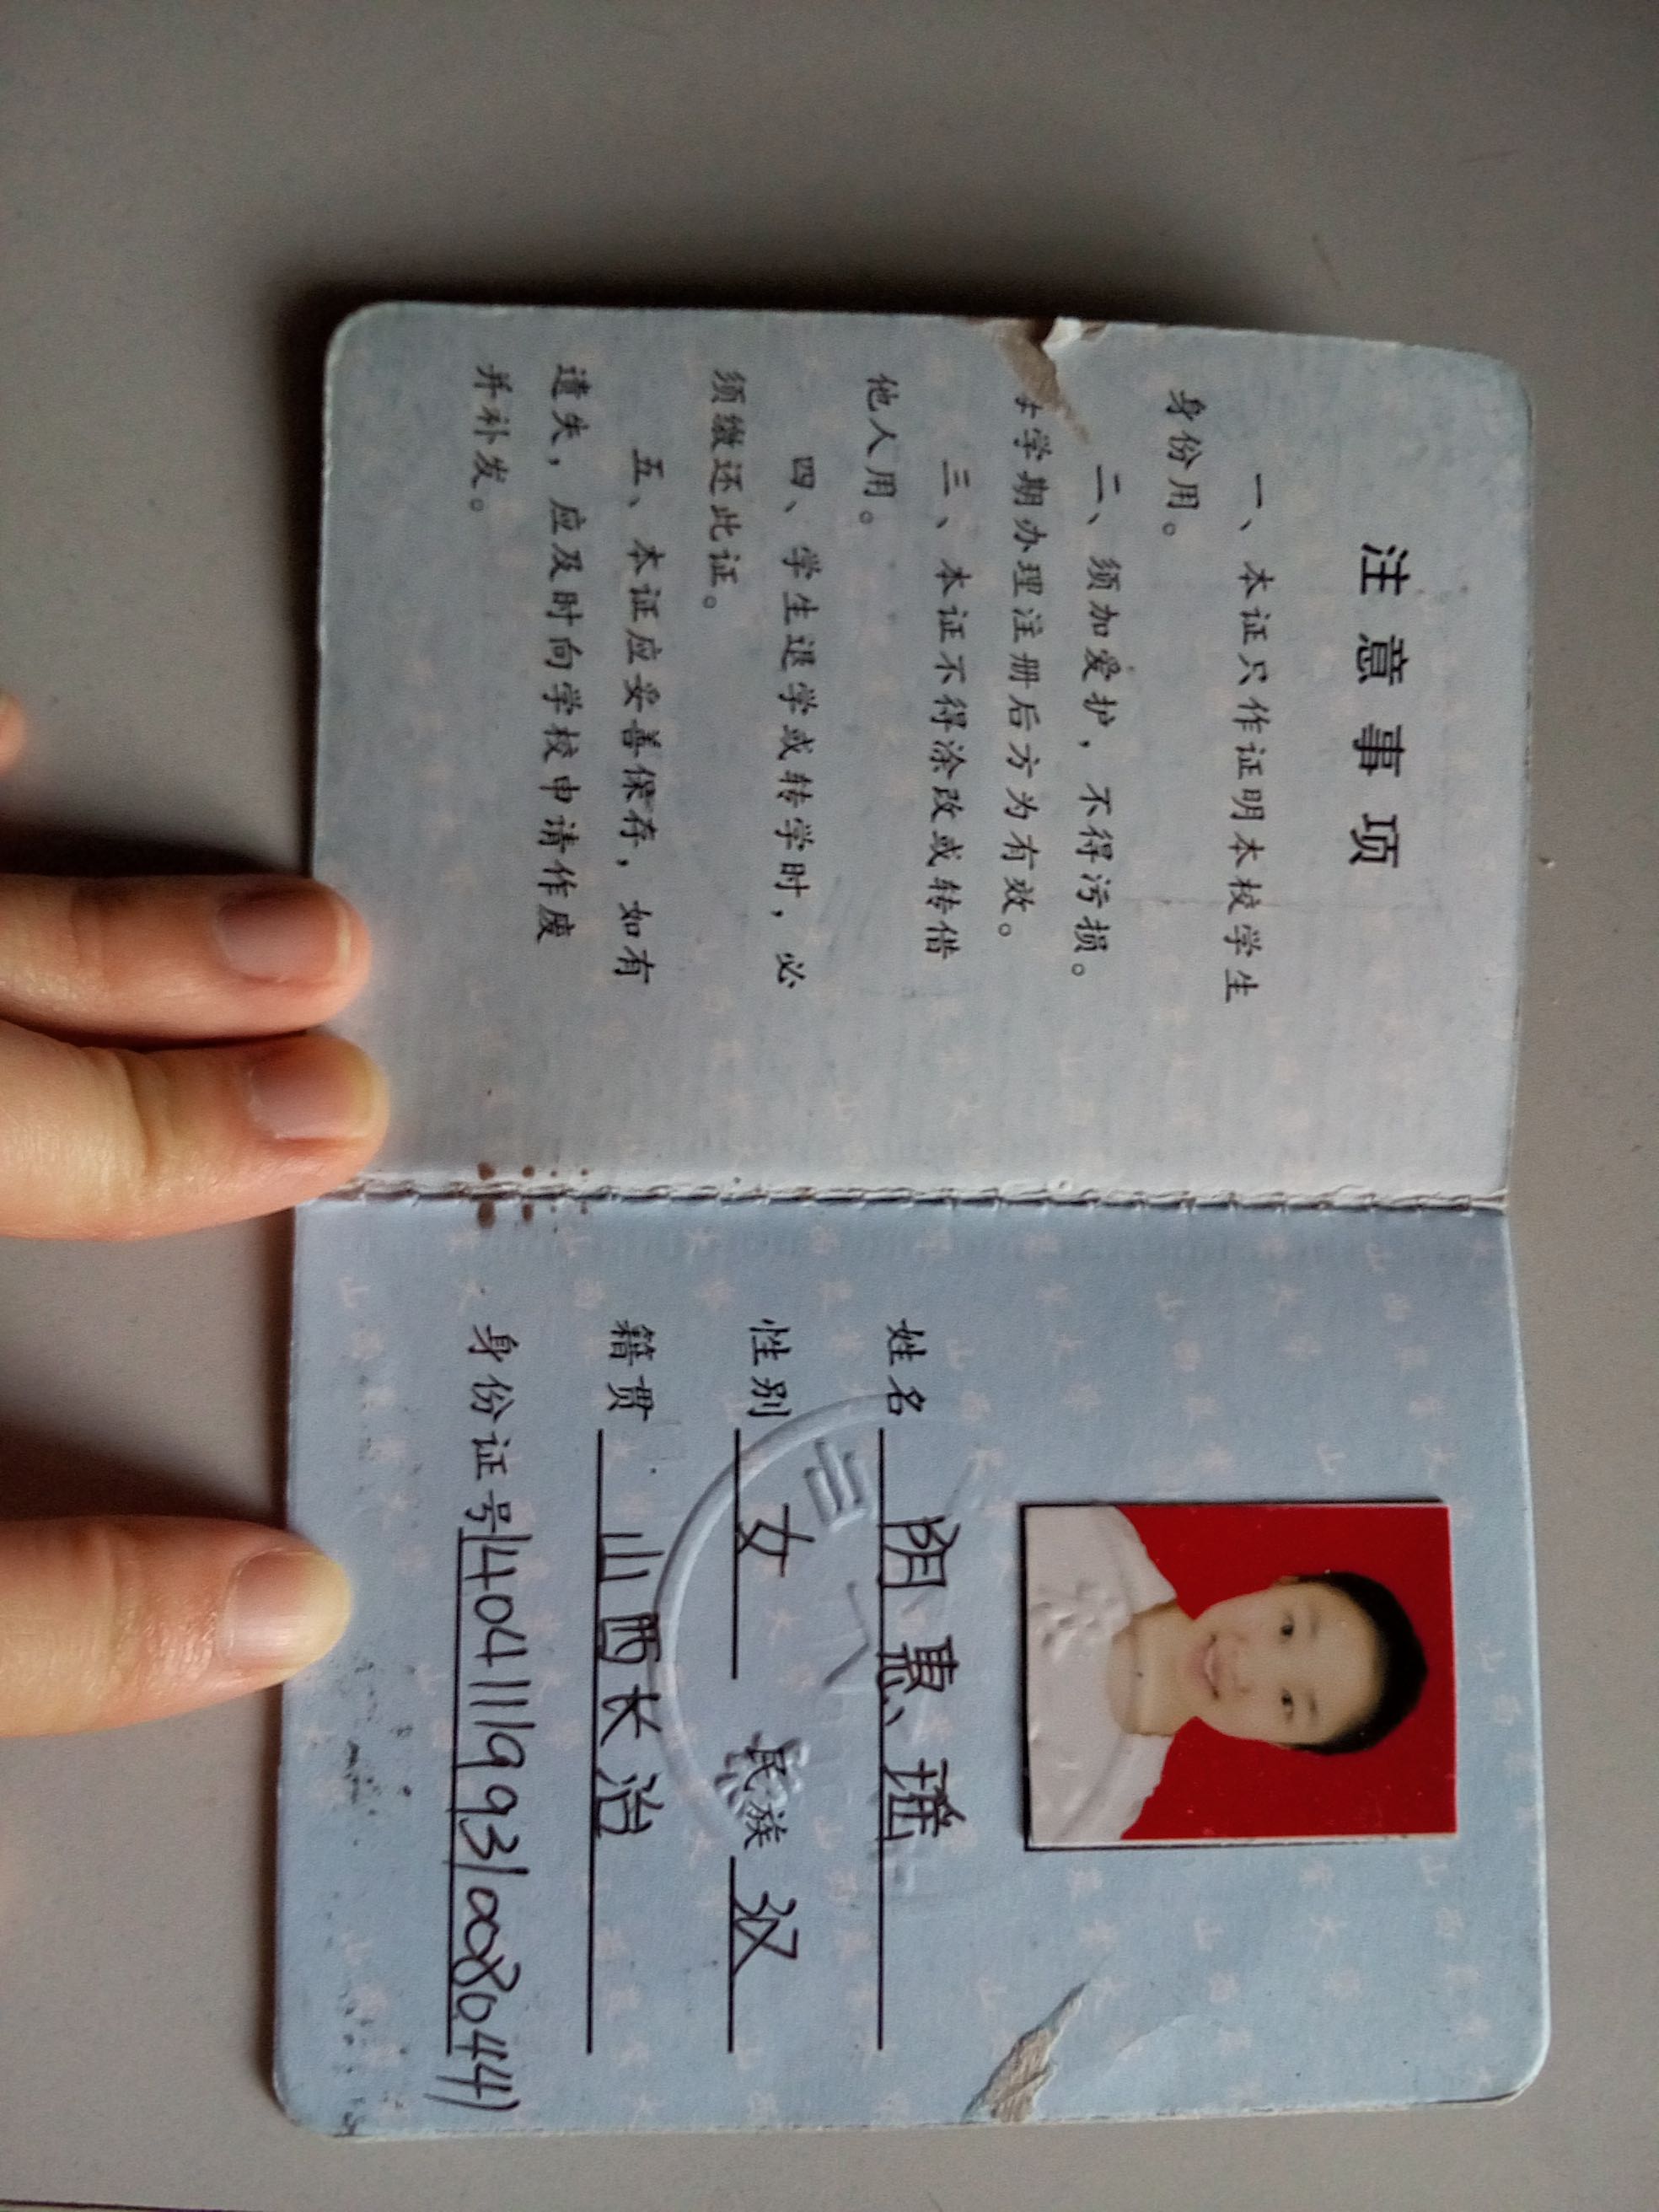 注意事项
一、本证只作证明本校学生
身份用。
二、须加爱护，不得污损。
学期办理注册后方为有效。
三、本证不得涂改或转借
他人用。
四、学生退学或转学时，必
须缴还此证。
五、本证应妥善保存，如有
遗失，应及时向学校申请作废
并补发。
姓名 阴惠璠
性别 女 民族 汉
籍贯 山西长治
身份证号 140411199310080441